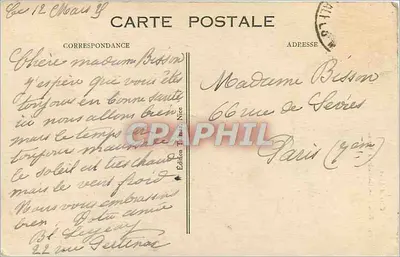 Ce 12 Mars
CARTE POSTALE
CORRESPONDANCE
ADRESSE
Chère madame Bisson
j'espère que vous êtes
toujours en bonne santé
ici nous allons bien
mais le temps est
toujours mauvais
le soleil est très chaud
mais le vent froid
Nous vous embrassons
bien. Votre amie
22 rue
Edition
Nice
Madame Bisson
66 rue de Sèvres
Paris (7ème)
CPAPHIL